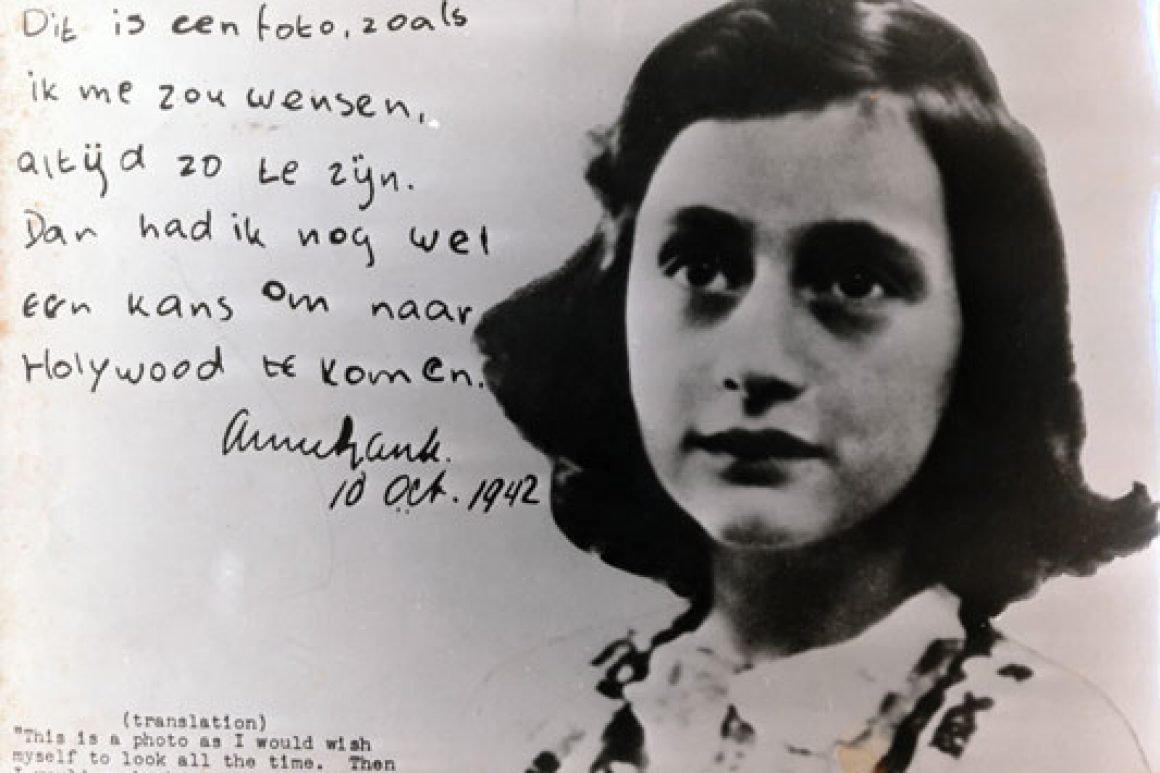 Dit is een foto, zoals
ik me zou wensen,
altijd zo te zijn.
Dan had ik nog wel
een kans om naar
Holywood te komen.
Annefrank.
10 Oct. 1942
(translation)
"This is a photo as I would wish
myself to look all the time. Then